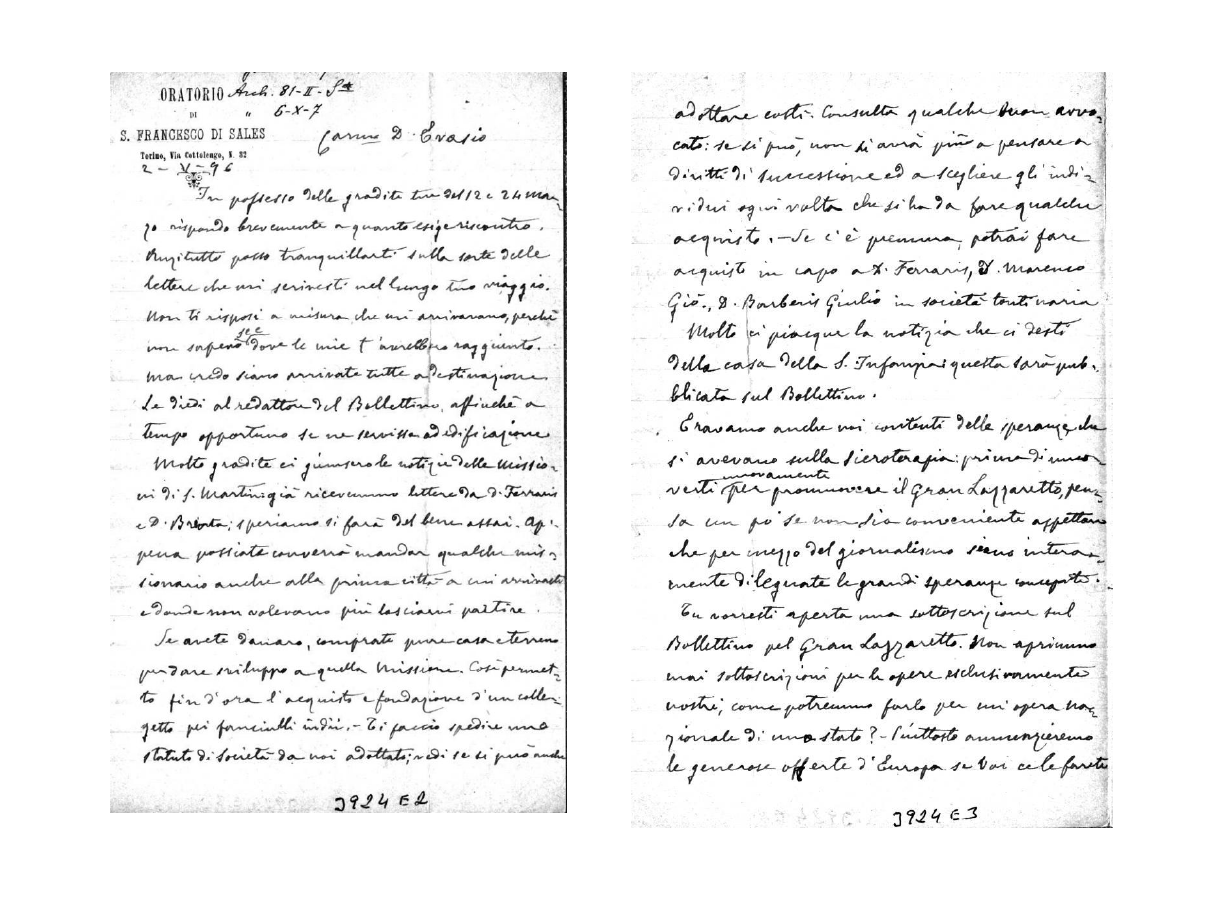 ORATORIO Arch. 81-II-S
DI " 6-X-7
S. FRANCESCO DI SALES
Torino, Via Cottolengo, N. 32
2 - V - 96
Carmo D. Evasio
In possesso delle gradite tue del 12 e 24 mar-
zo rispondo brevemente a quanto esige riscontro.
Anzitutto posso tranquillarti sulla sorte delle
lettere che mi scrivesti nel lungo tuo viaggio.
Non ti risposi a misura che mi arrivavano, perchè
non sapeva dove le mie t'avrebbero raggiunto.
ma credo siano arrivate tutte a destinazione
Le diedi al redattore del Bollettino, affinchè a
tempo opportuno se ne servisse ad edificazione
Molto gradite ci giunsero le notizie delle Missio-
ni di S. Martin: già ricevemmo lettere da D. Ferraris
e D. Brenta; speriamo si farà del bene assai. Ap-
pena possiate converrà mandar qualche mis-
sionario anche alla prima città a cui arrivasti
e donde non volevano più lasciarvi partire.
Se avete danaro, comprate pure casa e terreno
per dare sviluppo a quella Missione. Così permet-
to fin d'ora l'acquisto e fondazione d'un colle-
getto pei fanciulli indii. - Ti faccio spedire uno
statuto di Società da noi adottato; vedi se si può anche
J924 E2
adottare costì. Consulta qualche buon avvo-
cato: se si può, non si avrà più a pensare a
diritti di successione ed a scegliere gli indi-
vidui ogni volta che si ha da fare qualche
acquisto. - Se c'è premura, potrai fare
acquisti in capo a D. Ferraris, D. Marenco
Giò., D. Barberis Giulio in società tontinaria
Molto ci piacque la notizia che ci desti
della casa della S. Infanzia: questa sarà pub-
blicata sul Bollettino.
Eravamo anche noi contenti delle speranze che
si avevano sulla sieroterapia: prima di muo-
nuovamente
verti per promuovere il Gran Lazzaretto, pen-
sa un po' se non sia conveniente aspettare
che per mezzo del giornalismo siano intera-
mente dileguate le grandi speranze concepite.
Tu vorresti aperta una sottoscrizione sul
Bollettino pel Gran Lazzaretto. Non aprimmo
mai sottoscrizioni per le opere esclusivamente
nostre; come potremmo farlo per un'opera na-
zionale di uno stato? - Piuttosto annunzieremo
le generose offerte d'Europa se Voi ce le farete
J924 E3